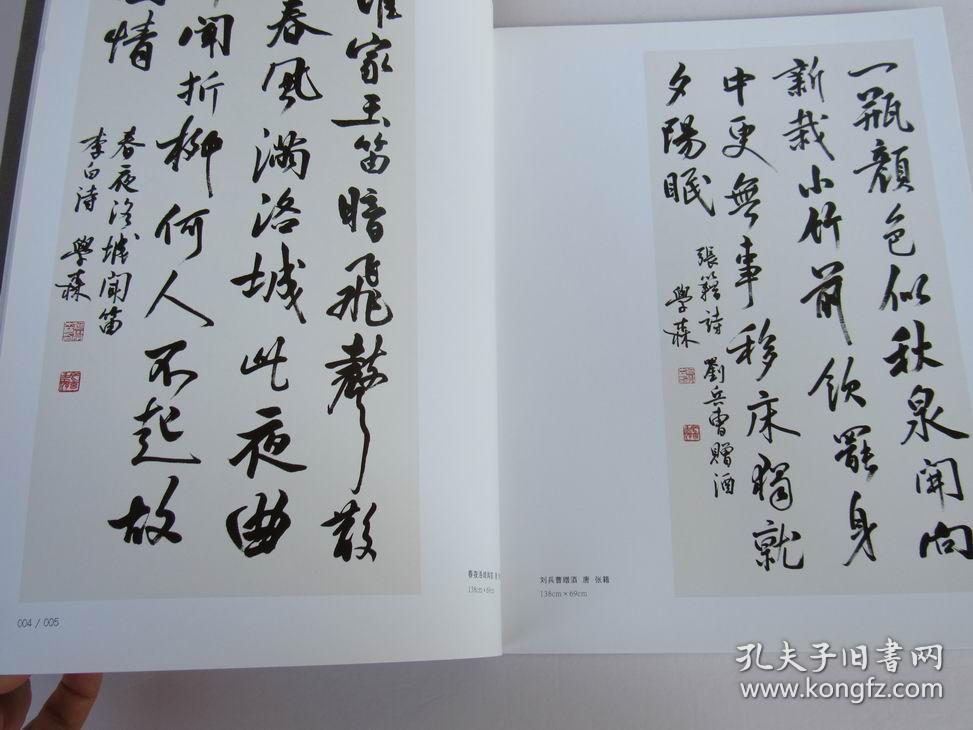 家玉笛暗飛聲散
春風满洛城此夜曲
中聞折柳何人不起故
園情
春夜洛城聞笛
李白诗 學森
004 / 005
春夜洛城闻笛
138cm×69cm
一瓶顏色似秋泉開向
新栽小竹前飲罷身
中更無事移床獨就
夕陽眠
張籍詩 劉兵曹贈酒
學森
刘兵曹赠酒 唐 张籍
138cm×69cm
孔夫子旧书网
www.kongfz.com